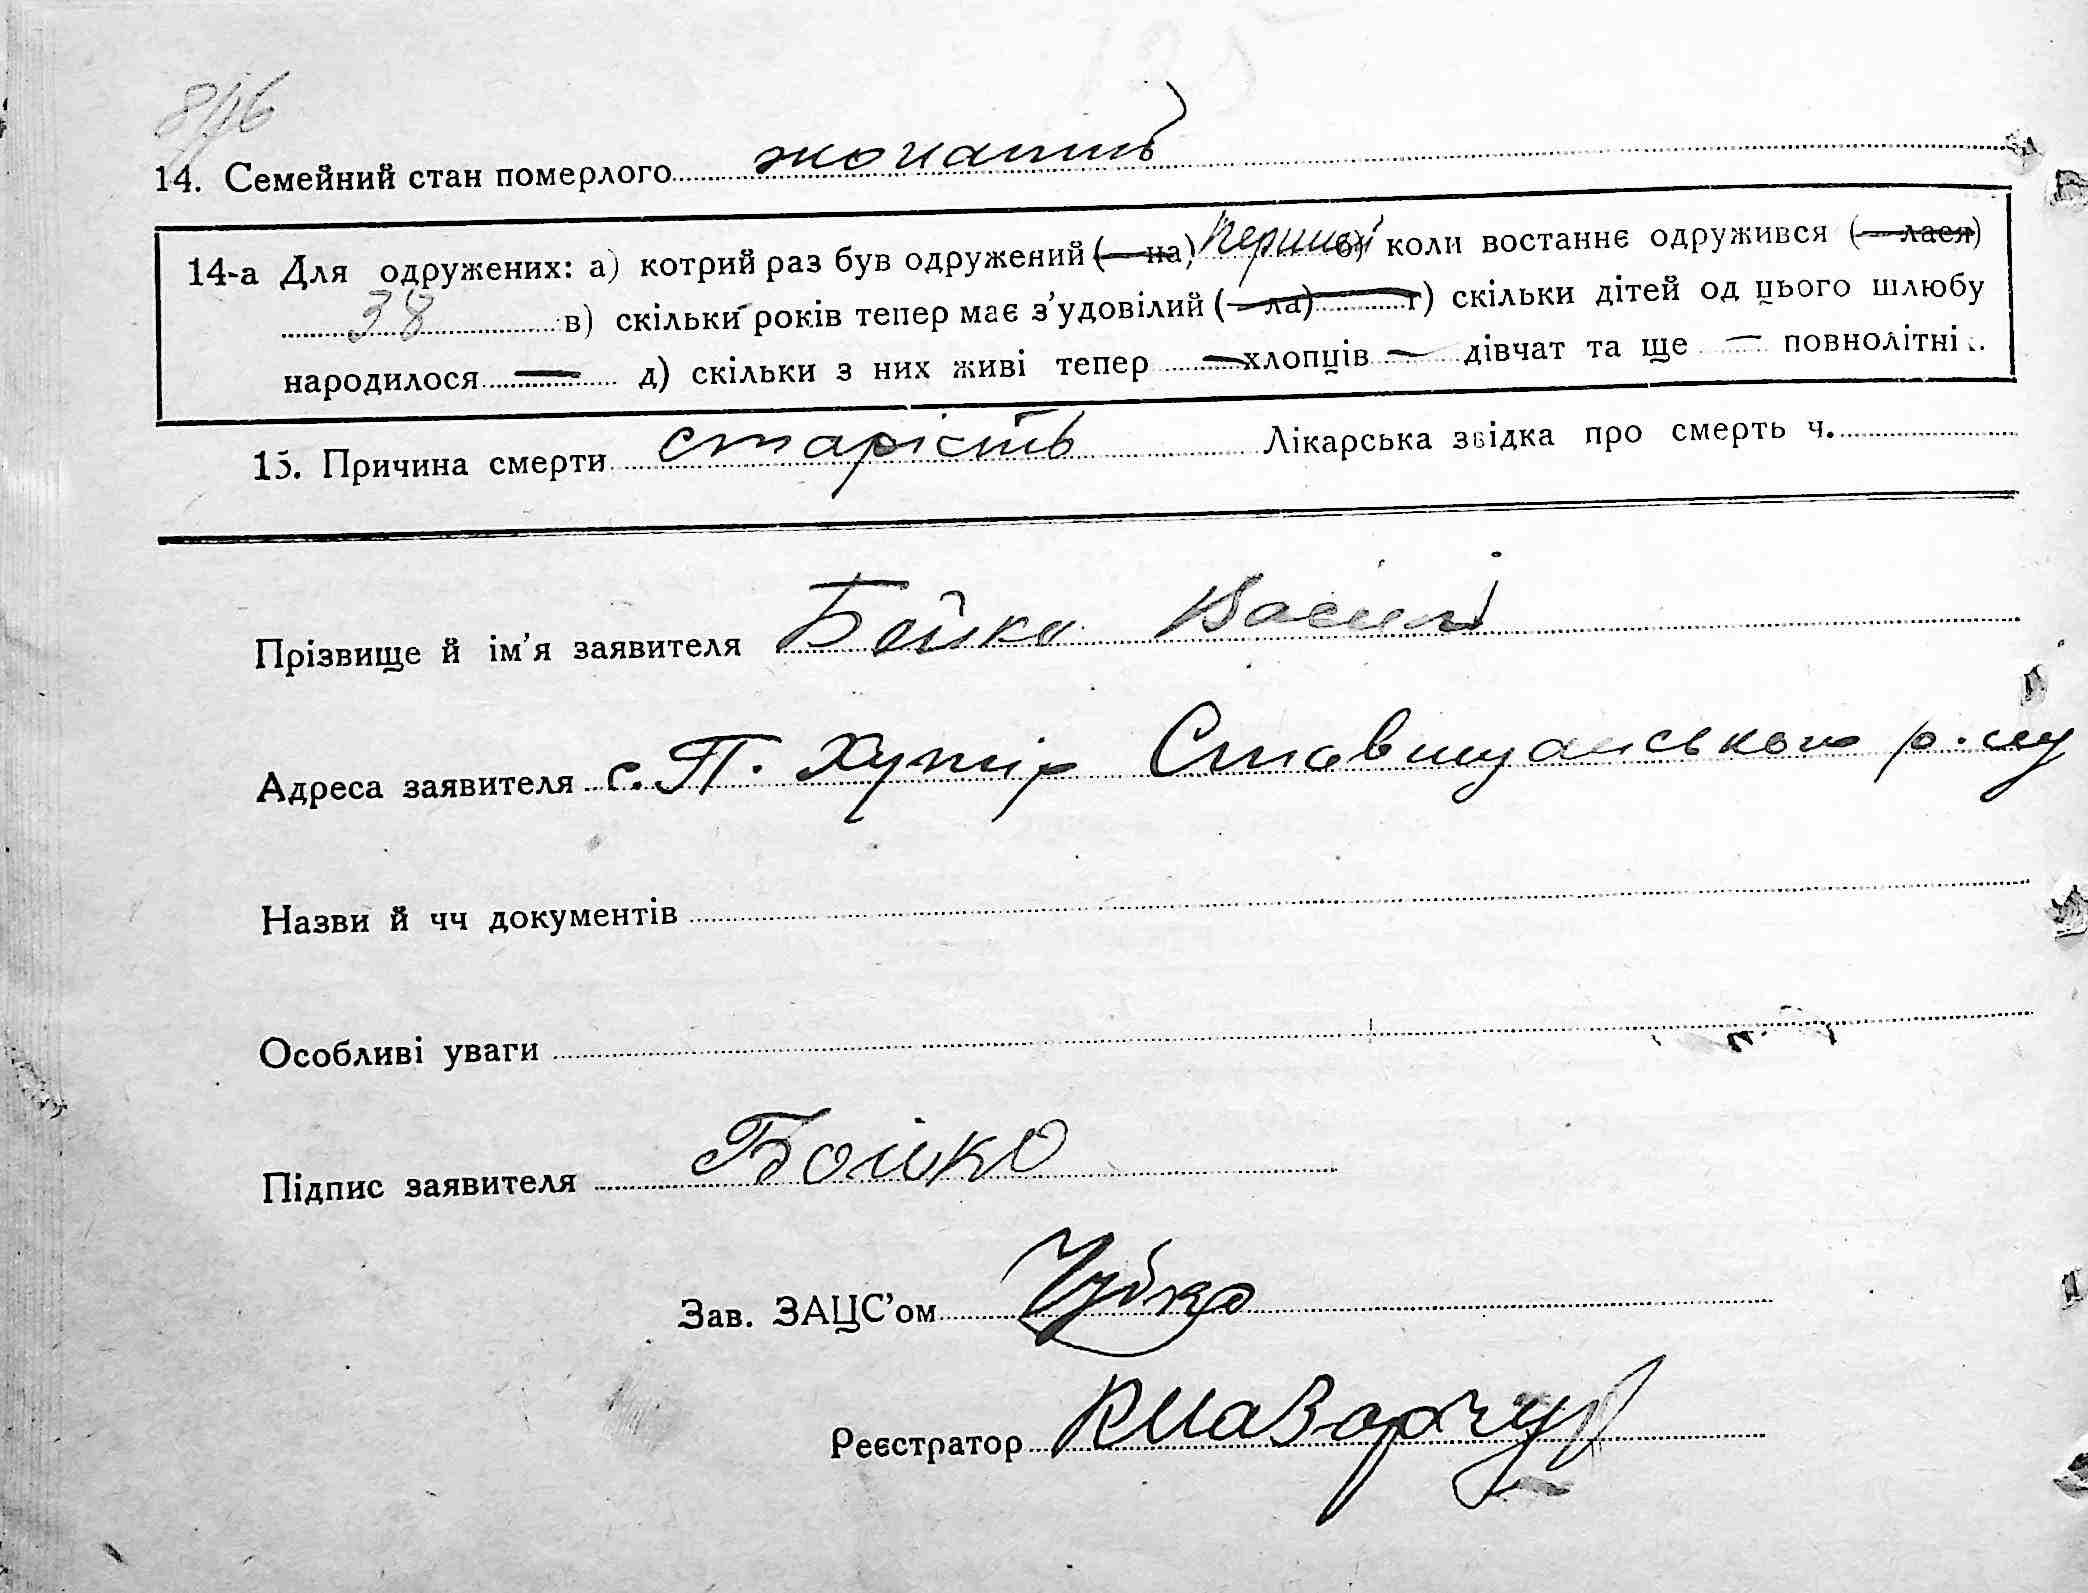 846
14. Семейний стан померлого жонатий
14-а Для одружених: а) котрий раз був одружений (—на) Перший б) коли востаннє одружився (—лася)
38 в) скільки років тепер має з'удовілий (—ла) г) скільки дітей од цього шлюбу
народилося — д) скільки з них живі тепер — хлопців — дівчат та ще — повнолітні..
15. Причина смерти старість Лікарська звідка про смерть ч.
Прізвище й ім'я заявителя Бойко Василі
Адреса заявителя с. П. Хутір Ставищанського р-ну
Назви й чч документів
Особливі уваги
Підпис заявителя Бойко
Зав. ЗАЦС'ом
Реєстратор